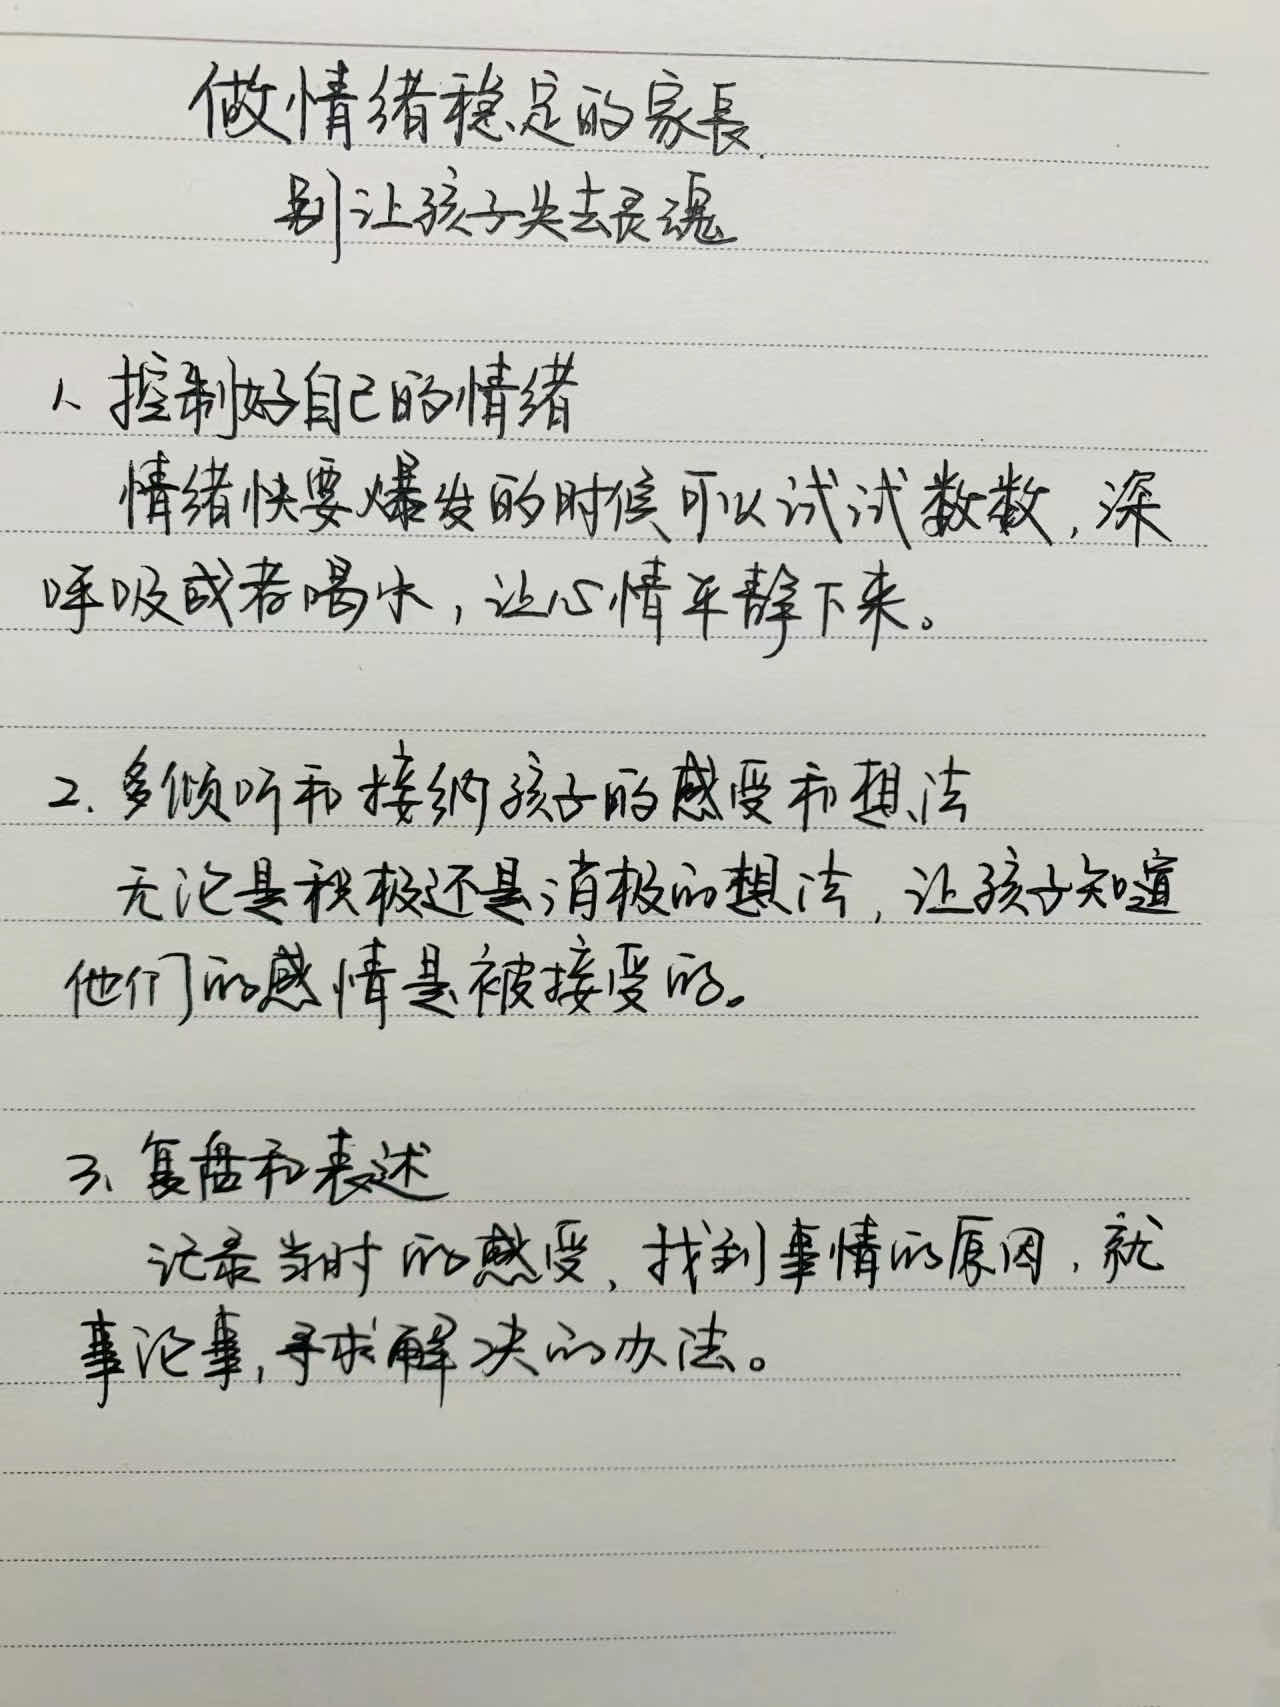 做情绪稳定的家長
别让孩子失去灵魂
1、控制好自己的情绪
情绪快要爆发的时候可以试试数数,深
呼吸或者喝水,让心情平静下来。
2.多倾听和接纳孩子的感受和想法
无论是积极还是消极的想法,让孩子知道
他们的感情是被接受的。
3、复盘和表述
记录当时的感受,找到事情的原因,就
事论事,寻求解决的办法。